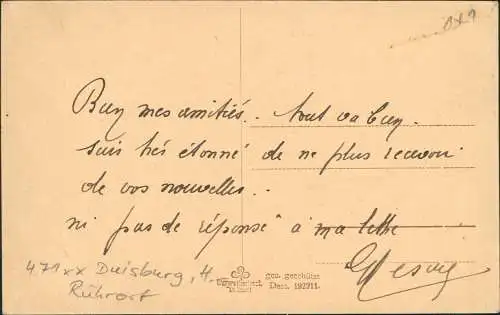 Bien mes amitiés.. tout va bien.
suis très étonné de ne plus recevoir
de vos nouvelles..
ni pas de réponse à ma lettre
471xx Duisburg, H.-
Ruhrort
ges. geschützt
Dess. 192311.